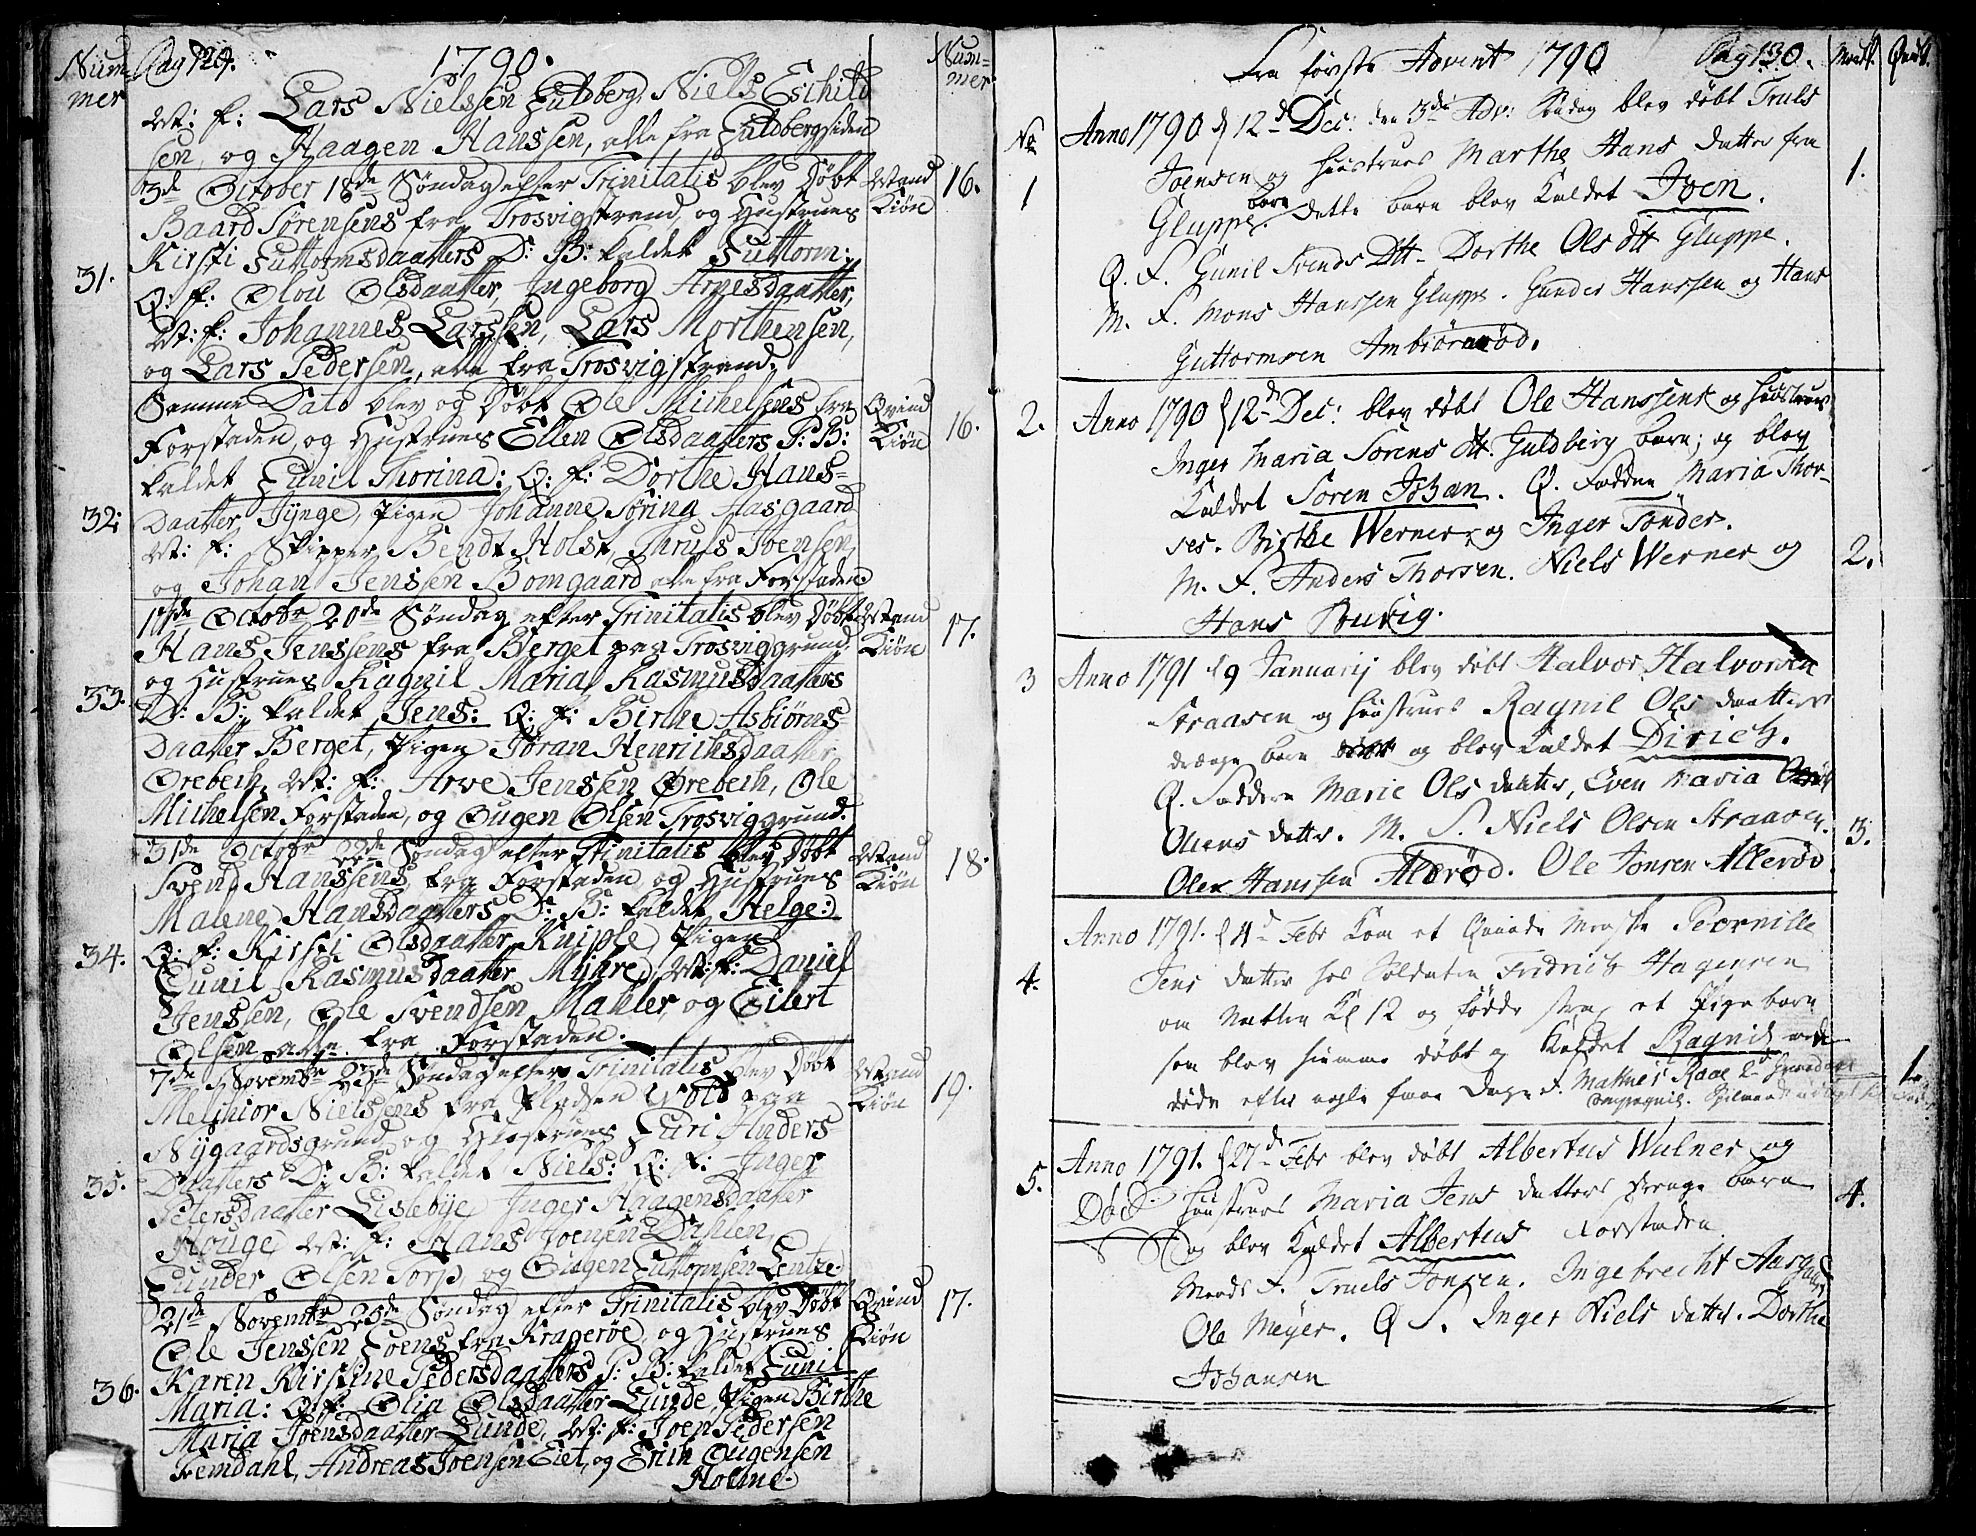 Num- Pag 129. 1790. Num-
mer mer
M: F: Lars Nielssen Guldberg, Niels Eschild
sen, og Haagen Hanssen, alle fra Guldbergsiden
3de October 18de Søndag efter Trinitatis blev Døbt Mand 16.
Baard Sørensens fra Trosvigstrand, og Hustrues Kiøn
Kirsti Guttormsdaatters D: B: kaldet Guttorm:
31. Q: F: Olou Olsdaatter, Ingeborg Arvesdaatter,
M: F: Johannes Larssen, Lars Morthensen,
og Lars Pedersen, alle fra Trosvigstrand.
Samme Dato blev og Døbt Ole Michelsens fra Qvind
Forstaden, og Hustrues Ellen Olsdaatters P: B: Kiøn 16.
kaldet Gunil Thorina: Q: F: Dorthe Hans-
32: Daatter, Tÿnge, Pigen Johanne Sørina Aasgaard
M: F: Skipper Bendt Holst, Thruls Joensen,
og Johan Jenssen Bomgaard alle fra Forstaden
17de Octobr 20de Søndag efter Trinitatis blev Døbt Mand 17.
Hans Jenssens fra Berget paa Trosviggrund, Kiøn
og Hustrues Ragnil Maria Rasmusdaatters
33. D: B: kaldet Jens: Q: F: Birthe Asbiørns-
Daatter Berget, Pigen Jøran Henrichsdaatter
Ørebech, M: F: Arve Jenssen Ørebech, Ole
Michelsen Forstaden, og Ougen Olsen Trosviggrund.
31de Octobr 22de Søndag efter Trinitatis blev Døbt Mand 18.
Svend Hanssens fra Forstaden og Hustrues Kiøn
Malene Hansdaatters D: B: kaldet Helge:
34. Q: F: Kirsti Olsdaatter Kniple, Pigen
Gunil Rasmusdaatter Mÿhre, M: F: Daniel
Jenssen, Ole Svendsen Mahler, og Eilert
Olsen alle fra Forstaden.
7de Novembr 23de Søndag efter Trinitatis blev Døbt Mand
Melchior Nielssens fra Pladsen paa Kiøn 19.
Nÿgaardsgrund og Hustrues Guri Anders
35. Daatters D: B: kaldet Niels: Q: F: Inger
Petersdaatter Lislebÿe Inger Haagensdaatter
Houge, M: F: Hans Joensen Dahlen,
Gunder Olsen Torp, og Ougen Guttormsen Lentze.
21de Novembr 25de Søndag efter Trinitatis blev Døbt Qvind 17.
Ole Jenssen Foens fra Kragerøe, og Hustrues Kiøn
36. Karen Kirstine Pedersdaatters P: B: kaldet Gunil
Maria: Q: F: Olia Olsdaatter Lunde, Pigen Birthe
Maria Joensdaatter Lunde, M: F: Joen Pedersen
Femdahl, Andreas Joensen Eiet, og Erich Ougensen
Holme.
Fra første Advent 1790 Pag 130. Mandk. Qvindk.
No Anno 1790 d 12d Dec: den 3de Adv: Søndag blev døbt Truls
1 Joensen og Hustrues Marthe Hans datter fra 1.
Gluppe. barn dette barn blev kaldet Joen.
Q. F. Gunil Svends Dtt- Dorthe Ols dtt Gluppe.
M. F. Mons Hanssen Gluppe. Gunder Hanssen og Hans
Guttormsen Ambiørnrød.
2. Anno 1790 d 12d Dec: blev døbt Ole Hanssens og Hustrues
Inger Maria Sørens dt. Guldberg barn; og blev
kaldet Søren Johan. Q. Faddere Maria Thor-
ses. Birthe Werner, og Inger Tønder.
M. F. Anders Thorsen. Niels Werner og 2.
Hans
3 Anno 1791 d 9 Januarij blev døbt Halvor Halvorsen
Straasen og Hustrues Ragnil Ols daatters
drænge barn og blev kaldet Dirich.
Q. Faddere Marie Ols datter, Even Maria
Oliens datter. M. F. Niels Olsen Straasen. 3.
Oler Hanssen Alerød. Ole Jonsen Allerød
Anno 1791. d 4d Febr kom et Qvinde Menske Pernille
4. Jens datter hos Soldaten Fridrich Hagensen
om Natten Kl 12 og fødde strax et Pige barn
som blev hiemme døbt og kaldet Ragnil men 1.
døde efter nogle faae Dage. F. Mathis Raae
Compagnie.
5. Anno 1791. d 27d Febr blev døbt Albertus Wulner og
Død Hustrues Maria Jens datters drenge barn 4.
og blev kaldet Albertus Forstaden
Mands F. Truels Jonsen. Ingebrecht Aasgaard
Ole Meÿer. Q F. Inger Niels datter. Dorthe
Johansen